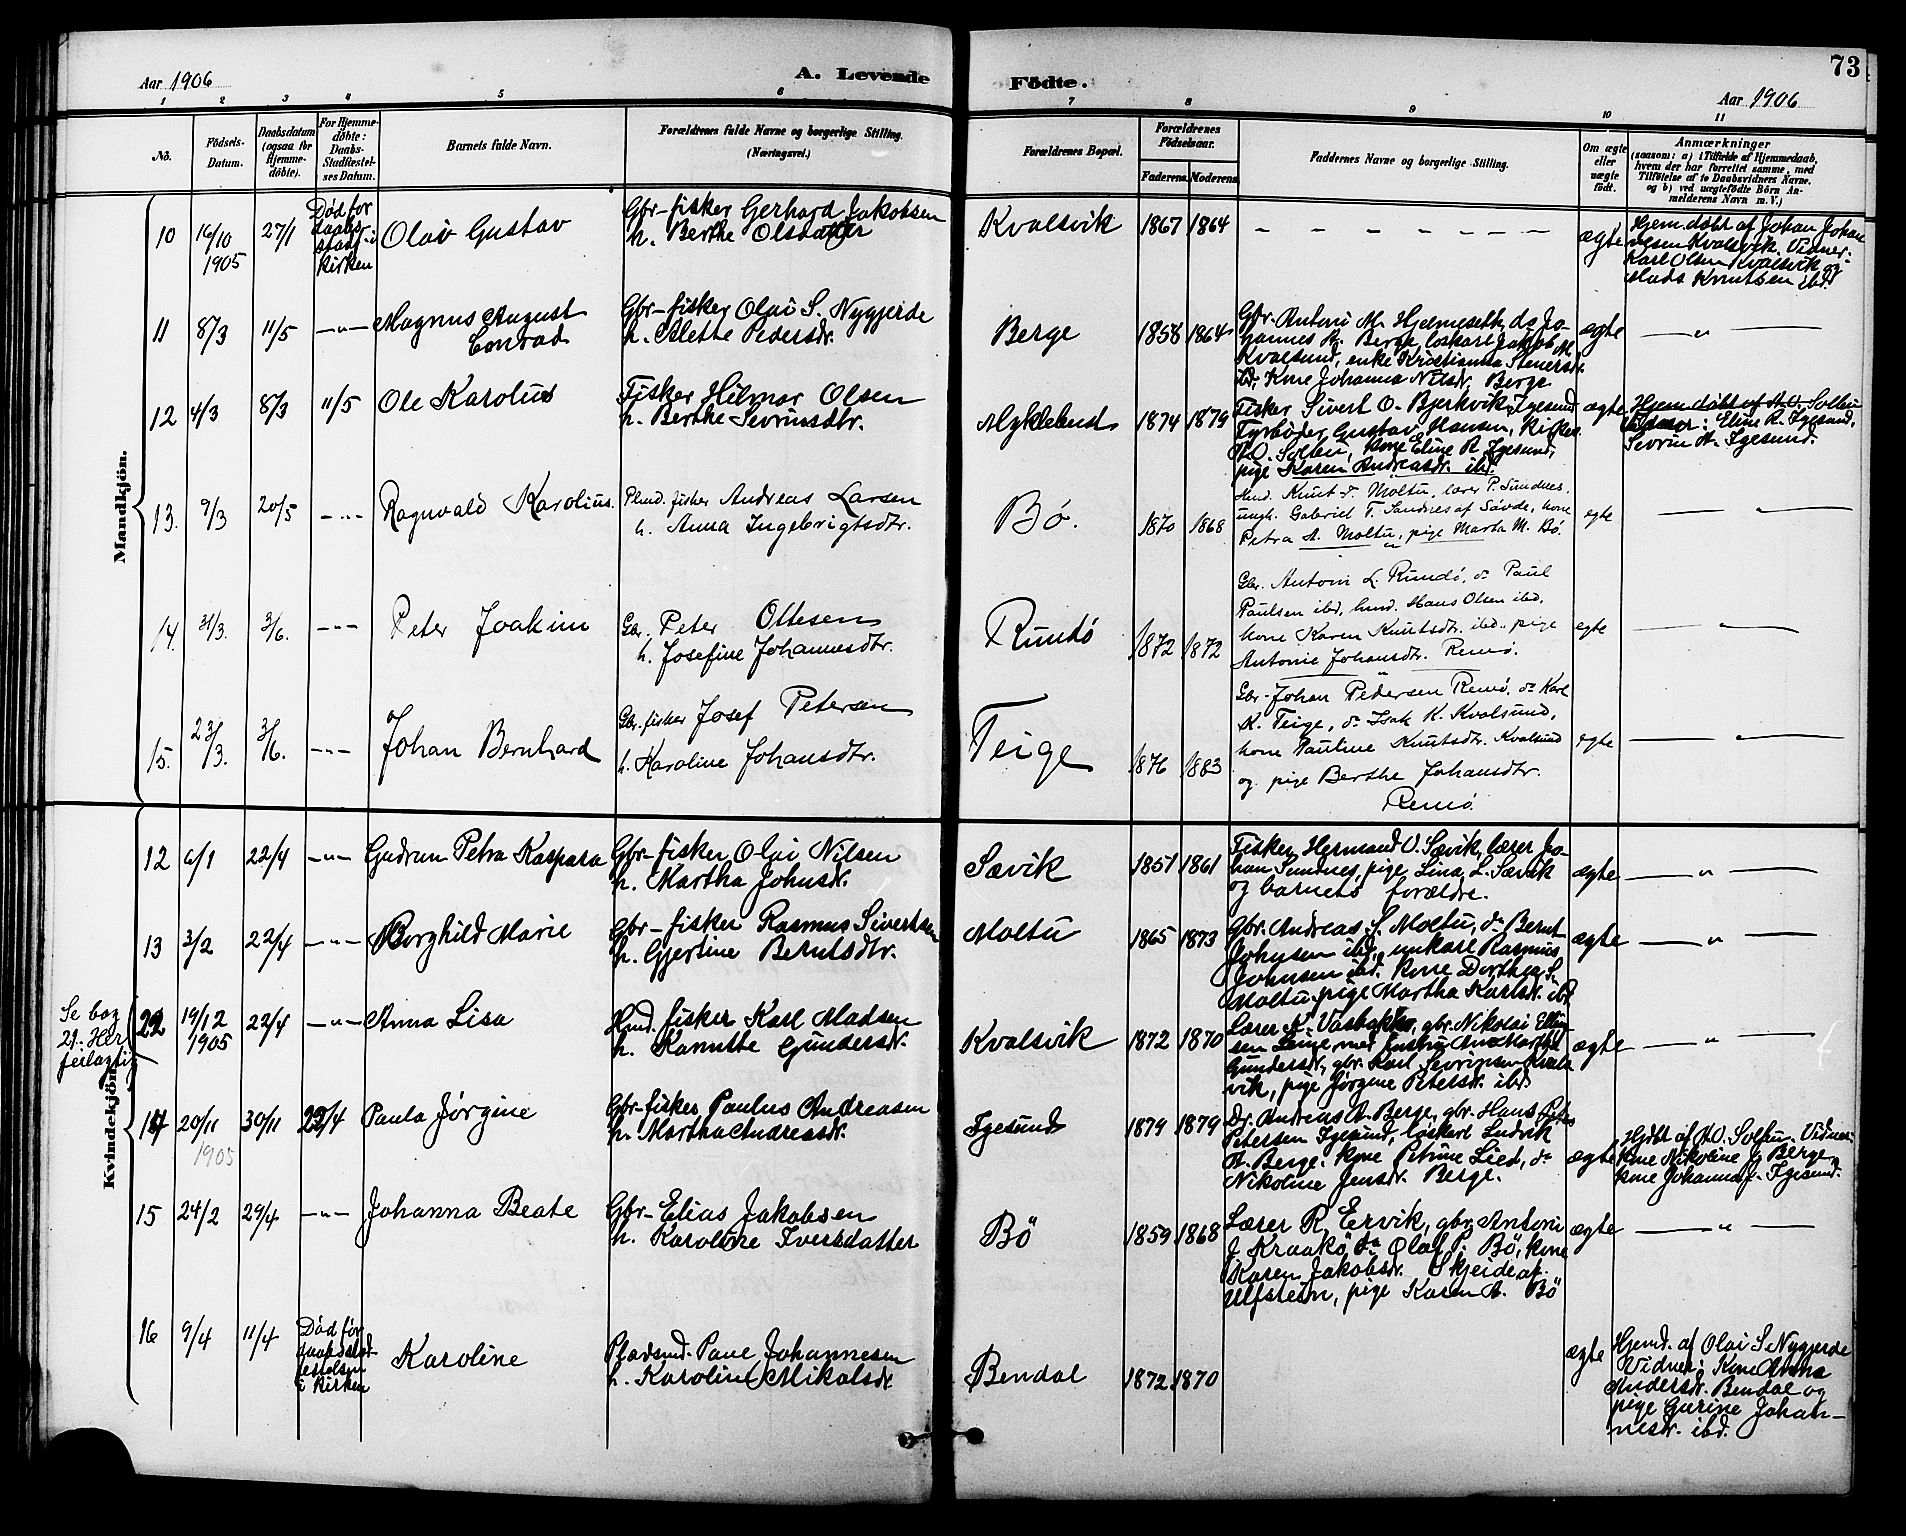 73
Aar 1906 A. Levende Födte. Aar 1906
1 2 3 4 5 6 7 8 9 10 11
No.
Födsels-
Datum.
Daabsdatum
(ogsaa for
Hjemme-
döbte).
For Hjemme-
döbte:
Daabs-
Stadfæstel-
ses Datum.
Barnets fulde Navn.
Forældrenes fulde Navne og borgerlige Stilling.
(Næringsvei.)
Forældrenes Bopæl.
Forældrenes
Födselsaar.
Faderens. Moderens.
Faddernes Navne og borgerlige Stilling.
Om ægte
eller
uægte
født.
Anmærkninger
(saasom: a) i Tilfælde af Hjemmedaab,
hvem der har forrettet samme, med
Tilföielse af to Daabsvidners Navne.
og b) ved uægtefödte Börn An-
melderens Navn m. V.)
Mandkjön.
10 16/10
1905
27/1
Død før
daabs
stadf. i
kirken
Olav Gustav
Gbr-fisker Gerhard Jakobsen
h. Berthe Olsdatter
Kvalsvik 1867 1864 – – – – – – – ægte
Hjem.døbt af Johan Johan
nesen Kvalsvik. Vidner:
Karl Olsen Kvalsvik og
Mads Knutsen ibd.
11 8/3 11/5 –"–
Magnus August
Conrad
Gbr-fisker Olai S. Nygjerde
h. Alette Pedersdr.
Berge 1858 1864
Gbr. Antoni M. Hjelmeseth, do Jo-
hannes A. Berge, løskarl Jakob M.
Kvalsund, enke Kristianna Steuersdr.
ibd. Kone Johanna Nilsdr. Berge
ægte — " —
12 4/3 8/3 11/5 Ole Karolus
Fisker Hilmar Olsen
h. Berthe Sevrinsdtr.
Myklebust 1874 1879
Fisker Sivert O. Bjerkvik, Igesund
Fyrbøder Gustav Hansen, Kirken.
A.O. Solbu, kone Eline R. Igesund,
pige Karen Andreasdr. ibd.
ægte
Hjem.døbt af A.O. Solbu
Vidner: Eline R. Igesund,
Sevrin A. Igesund.
13. 9/3 20/5 –"– Ragnvald Karolius.
Plmd. fisker Andreas Larsen
h. Anna Ingebrigtsdtr.
Bø. 1870 1868
Hmd. Knut do Moltu, lærer P. Sundnes,
ungk. Gabriel T. Sandnes af Søvde, kone
Petra A. Moltu, pige Marta M. Bø.
egte — " —
14. 31/3. 3/6. –"– Peter Joakim
Gbr. Peter Ottesen
h. Josefine Johannesdtr.
Rundø 1872 1872
Gbr. Antoni L. Rundø, do Paul
Paulsen ibd, hmd. Hans Olsen ibd,
kone Karen Knutsdtr. ibd., pige
Antonie Johansdtr. Remø.
egte — " —
15. 23/3. 3/6. –"– Johan Bernhard
Gbr. fisker Josef Petersen
h. Karoline Johansdtr.
Teige 1876 1883
Gbr. Johan Pedersen Remø, do Karl
K. Teige, do Isak K. Kvalsund,
kone Pauline Knutsdtr. Kvalsund
og pige Berthe Johansdtr.
Remø
egte — " —
Kvindekjön.
12 6/1 22/4 –"– Gudrun Petra Kaspara
Gbr-fisker Olai Nilsen
h. Martha Johnsdr.
Sævik 1851 1861
Fisker Hermand O. Sævik, lærer Jo-
han Sundnes, pige Lina L. Sævik
og barnets forældre.
ægte — " —
13 3/2 22/4 –"– Borghild Marie
Gbr-fisker Rasmus Sivertsen
h. Gjertine Berntsdtr.
Moltu 1865 1873
Gbr. Andreas S. Moltu, do Bernt
Johnsen ibd, unkarl Rasmus
Johnsen ibd. Kone Dorthea S.
Moltu, pige Martha Karlsdr. ibd
ægte — " —
Se bag
21. Her
feilagtig
22 19/12
1905
22/4 –"– Anna Lisa
Hmd. fisker Karl Madsen
h. Kanutte Gundersdr.
Kvalsvik 1872 1870
Lærer K. Vasbakke, gbr. Nikolai Elling-
sen Leine med hustru Ane Martha
Gundersdr, gbr. Karl Sevrinsen Kvals
vik, pige Jørgine Petersdr. ibd
ægte — " —
14 20/11
1905
30/11 22/4 Paula Jørgine
Gbr-fisker Paulus Andreasen
h. Martha Andreasdr.
Igesund 1879 1879
Gbr. Andreas A. Berge, gbr. Hans Peter
Petersen Igesund, løskarl Ludvik
A. Berge. Kone Petrine Lied, do
Nikoline Jensdr. Berge.
ægte
Hjdbt af A.O. Solbu. Vidner:
Kone Nikoline J. Berge,
kone Johanna J. Igesund.
15 24/2 29/4 –"– Johanna Beate
Gbr- Elias Jakobsen
h. Karoline Iversdatter
Bö 1859 1868
Lærer R. Ervik, gbr. Antoni
J Kraakö, do Olaf P. Bö, kone
Karen Jakobsdr. Skjeide af
Ulfstein, pige Karen A. Bö
ægte — " —
16 9/4 11/4
Død før
daabsstad-
festelsen
i Kirken
Karoline
Pladsmd. Paul Johannesen
h. Karoline Mikalsdr.
Bendal 1872 1870 ægte
Hjemd. af Olai S. Nygjerde
Vidner: Kone Anna
Andersdr. Bendal og
pige Gurine Johan-
nesdr. ibd.